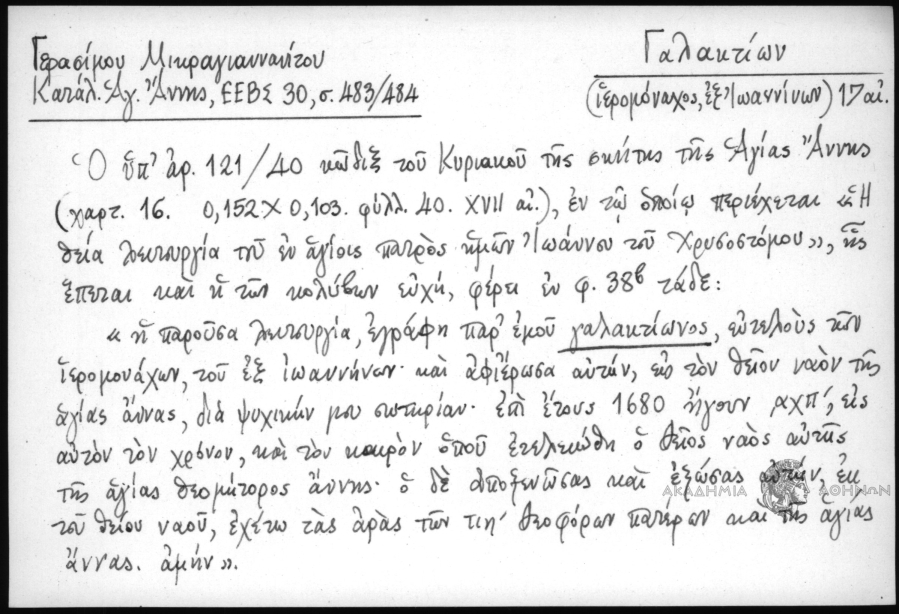 Γερασίμου Μικραγιαννανίτου
Κατάλ. Ἁγ. Ἄννης, ΕΕΒΣ 30, σ. 483/484
Γαλακτίων
(ἱερομόναχος, ἐξ Ἰωαννίνων) 17 αἰ.
Ὁ ὑπ' ἀρ. 121/40 κῶδιξ τοῦ Κυριακοῦ τῆς σκήτης τῆς Ἁγίας Ἄννης
(χαρτ. 16. 0,152 Χ 0,103. φύλλ. 40. XVII αἰ.), ἐν τῷ ὁποίῳ περιέχεται «Ἡ
θεία λειτουργία τοῦ ἐν ἁγίοις πατρὸς ἡμῶν Ἰωάννου τοῦ Χρυσοστόμου», ἧς
ἕπεται καὶ ἡ τῶν κολύβων εὐχή, φέρει ἐν φ. 38β τάδε:
« ἡ παροῦσα λειτουργία, ἐγράφη παρ' ἐμοῦ γαλακτίωνος, εὐτελοῦς τῶν
ἱερομονάχων, τοῦ ἐξ ἰωαννήνων· καὶ ἀφιέρωσα αὐτήν, εἰς τὸν θεῖον ναὸν τῆς
ἁγίας ἄννας, διὰ ψυχικήν μου σωτηρίαν· ἐπὶ ἔτους 1680 ἤγουν ͵αχπ', εἰς
αὐτὸν τὸν χρόνον, καὶ τὸν καιρὸν ὁποῦ ἐτελειώθη ὁ θεῖος ναὸς αὐτῆς
τῆς ἁγίας θεομήτορος ἄννης· ὁ δὲ ἀποξενῶσας καὶ ἐξώσας αὐτήν, ἐκ
τοῦ θείου ναοῦ, ἐχέτω τὰς ἀρὰς τῶν τιη' θεοφόρων πατέρων καὶ τῆς ἁγίας
ἄννας. ἀμήν».
ΑΚΑΔΗΜΙΑ ΑΘΗΝΩΝ